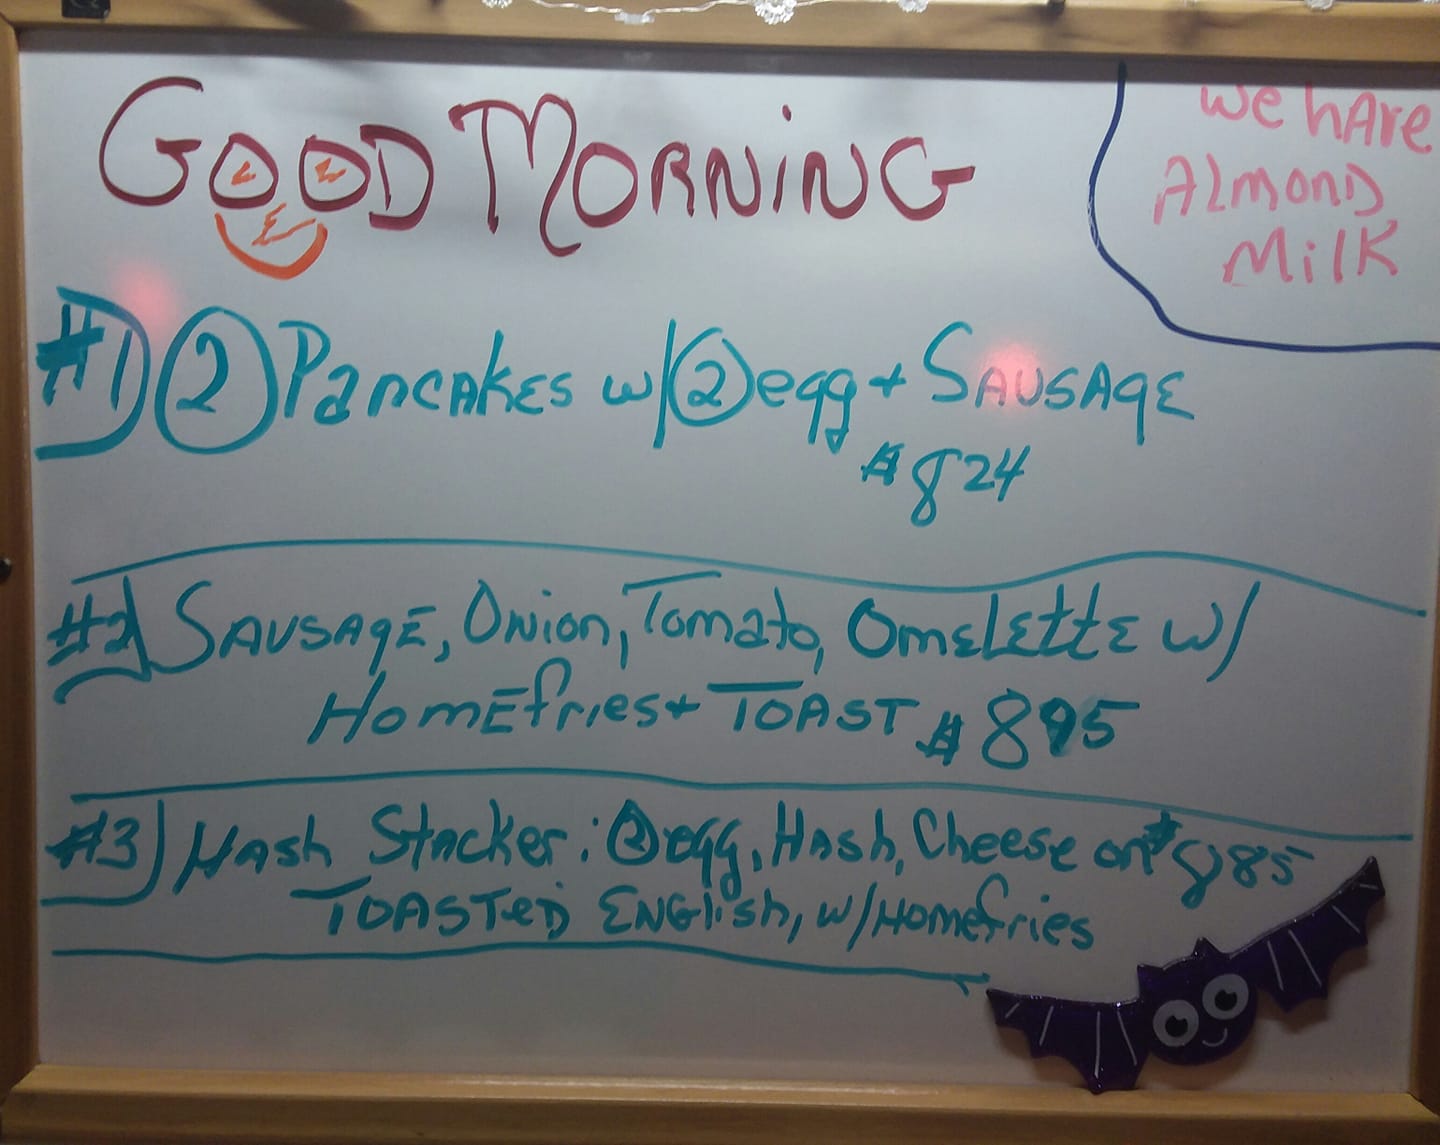 GOOD MORNiNG
We hAve
ALmonD
MilK
#1 2 PancAKES w/ 2 egg + SAUSAgE
$824
#2 SAUSAgE, Onion, Tomato, OmELEttE w/
HomEfries + TOAST $895
#3 HAsh Stacker: 2 egg, HAsh, Cheese on $885
TOASTeD ENGlish, w/Homefries